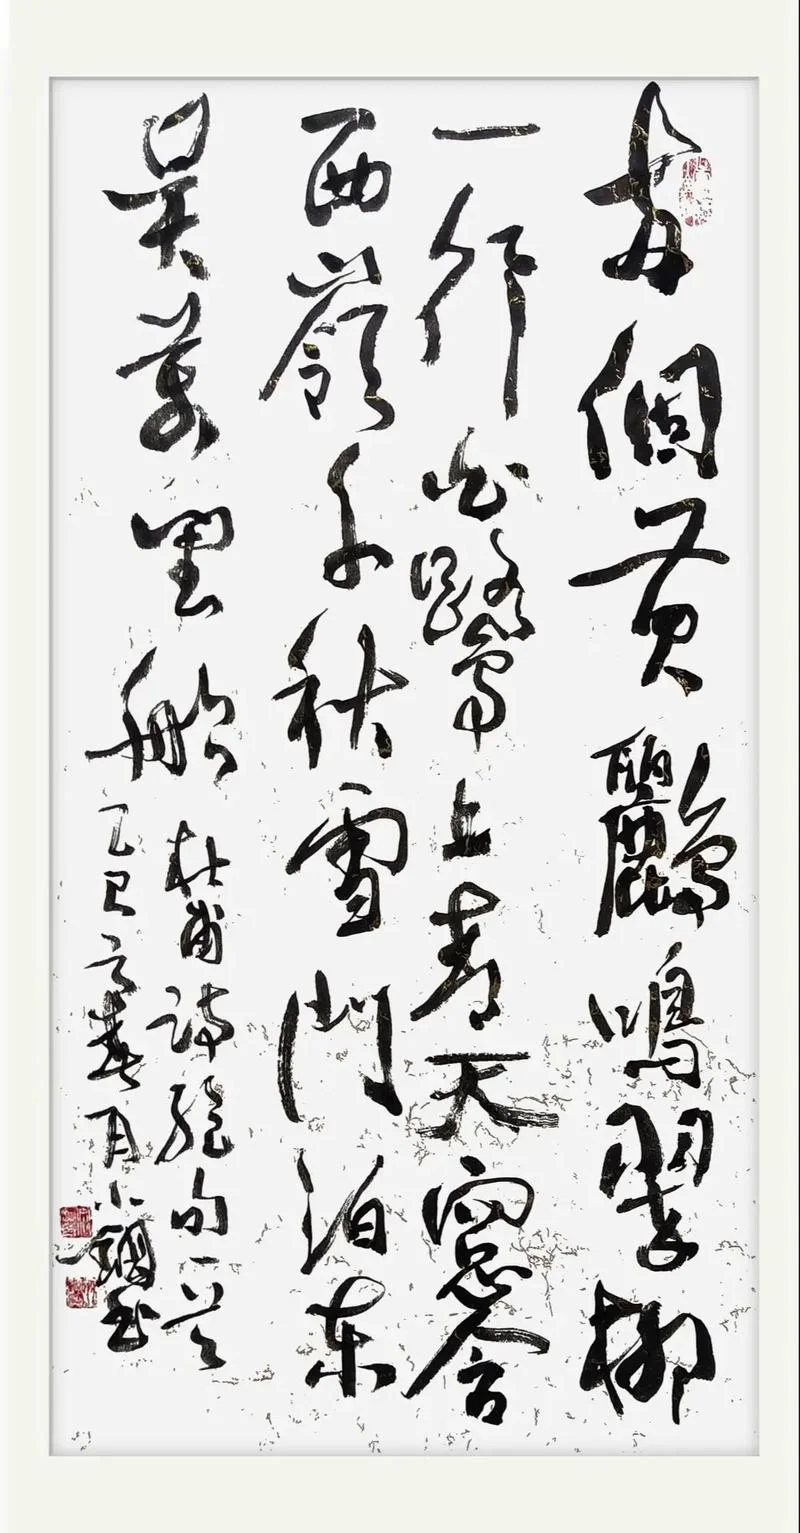 两個黄鸝鳴翠柳
一行白鷺上青天窓含
西嶺千秋雪門泊東
吴萬里船
杜甫詩絶句一首
乙巳春月小鋼书